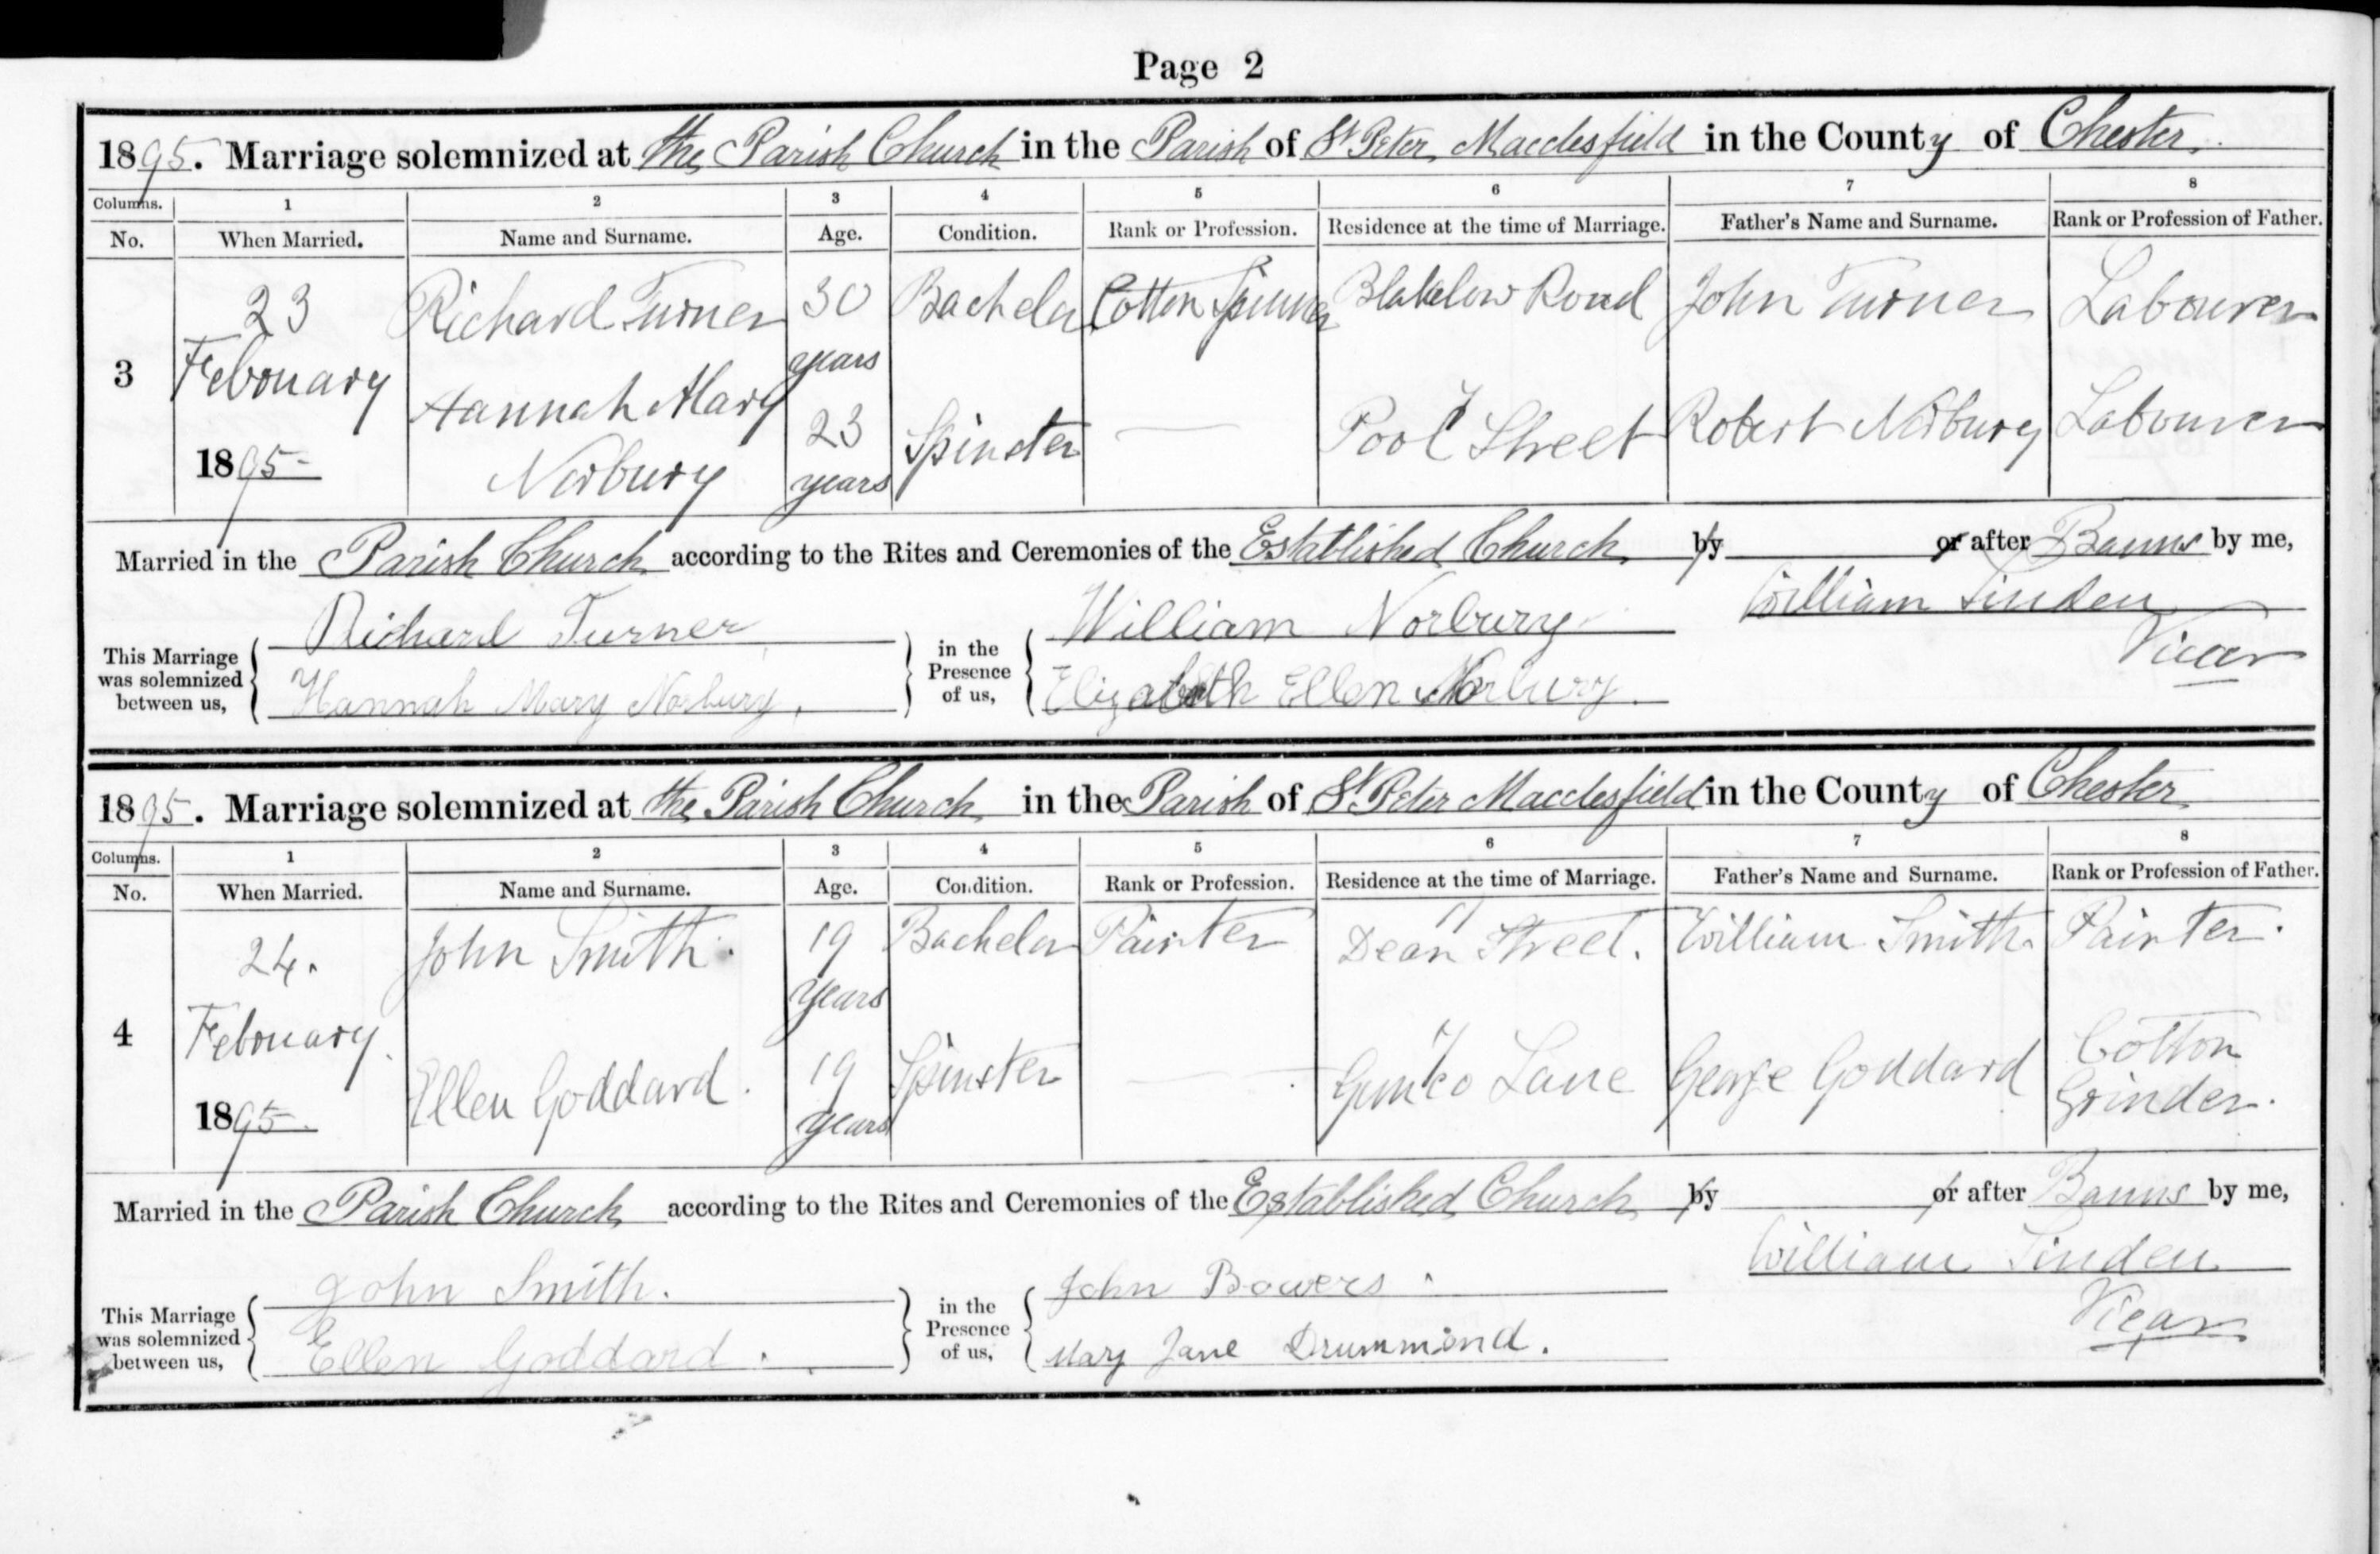 Page 2
1895. Marriage solemnized at the Parish Church in the Parish of St Peter Macclesfield in the County of Chester.
Columns. 1 2 3 4 5 6 7 8
No. When Married. Name and Surname. Age. Condition. Rank or Profession. Residence at the time of Marriage. Father's Name and Surname. Rank or Profession of Father.
3 23 February 1895 Richard Turner 30 years Bachelor Cotton Spinner Blakelow Road John Turner Labourer
Hannah Mary Norbury 23 years Spinster — Pool Street Robert Norbury Labourer
Married in the Parish Church according to the Rites and Ceremonies of the Established Church by or after Banns by me,
William Linden
Vicar
This Marriage was solemnized between us, Richard Turner Hannah Mary Norbury, in the Presence of us, William Norbury Elizabeth Ellen Norbury.
1895. Marriage solemnized at the Parish Church in the Parish of St Peter Macclesfield in the County of Chester
Columns. 1 2 3 4 5 6 7 8
No. When Married. Name and Surname. Age. Condition. Rank or Profession. Residence at the time of Marriage. Father's Name and Surname. Rank or Profession of Father.
4 24. February. 1895. John Smith. 19 years Bachelor Painter Dean Street. William Smith. Painter.
Ellen Goddard. 19 years Spinster — Lane George Goddard Cotton Grinder.
Married in the Parish Church according to the Rites and Ceremonies of the Established Church by or after Banns by me,
William Linden
Vicar
This Marriage was solemnized between us, John Smith. Ellen Goddard. in the Presence of us, John Bowers. Mary Jane Drummond.